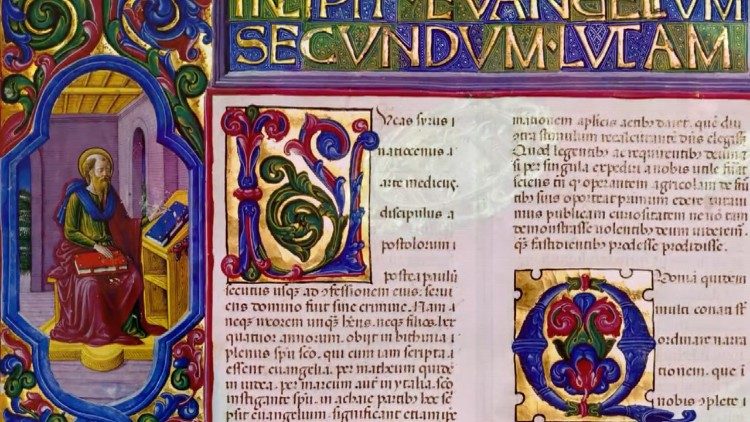 INCIPIT · EVANGELIUM
SECVNDVM · LVCAM
Vcas syrus i
natiocenus a
arte medicinę
discipulus a
postolorum i
postea paulū
secutus usq, ad cōfessionem eius. serui
ens domino siue sine crimine. Nam
neq, uxorem unq̄ hn̄s. neq, filios. lxx
quatior annorum. obijt in bithinia
plenus spū scō. qui cum iam scripta
essent euangelia. per matheum quidē
in iudea. per marcum aut̄ in ytalia. scō
instigante spū. in achaie partibus hoc
psit euangelium. significans etiam ipse
mationem aplicis actibus daret. que diu
extra stimulum recalcitrante dn̄s elegiss
Quod legentibus ac requirentibus deum
si per singula expediri a nobis utile fuit
sciens tn̄ q, operantem agricolam de
tibus suis oporteat primum edere uitaui
mus publicam curiositatem ne uō tam
demonstrasse uolentibus deum uideremur
q̄ fastidientibus prodesse prodidisse.
Uoniā quidem
multi conati sst
ordinare narra
tionem. que i
nobis cōplete